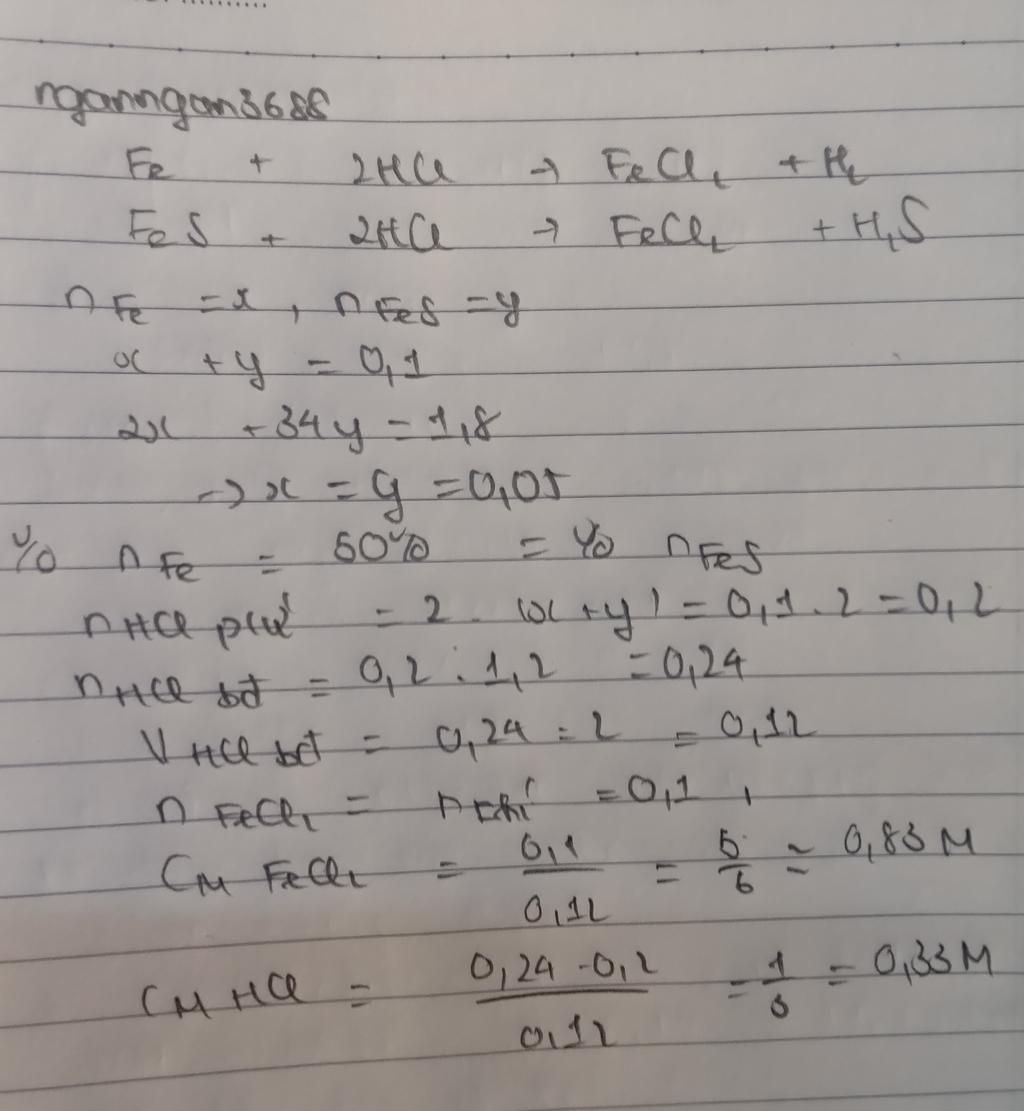 nganngan3688
Fe + 2HCl → FeCl₂ + H₂
FeS + 2HCl → FeCl₂ + H₂S
n Fe = x, n FeS = y
x + y = 0,1
2x + 34y = 1,8
→ x = y = 0,05
% n Fe = 50% = % n FeS
n HCl pứ = 2. (x + y) = 0,1.2 = 0,2
n HCl bđ = 0,2.1,2 = 0,24
V HCl bđ = 0,24:2 = 0,12
n FeCl₂ = n khí = 0,1,
CM FeCl₂ = 0,1/0,12 = 5/6 ≈ 0,83M
CM HCl = (0,24-0,2)/0,12 = 1/3 = 0,33M